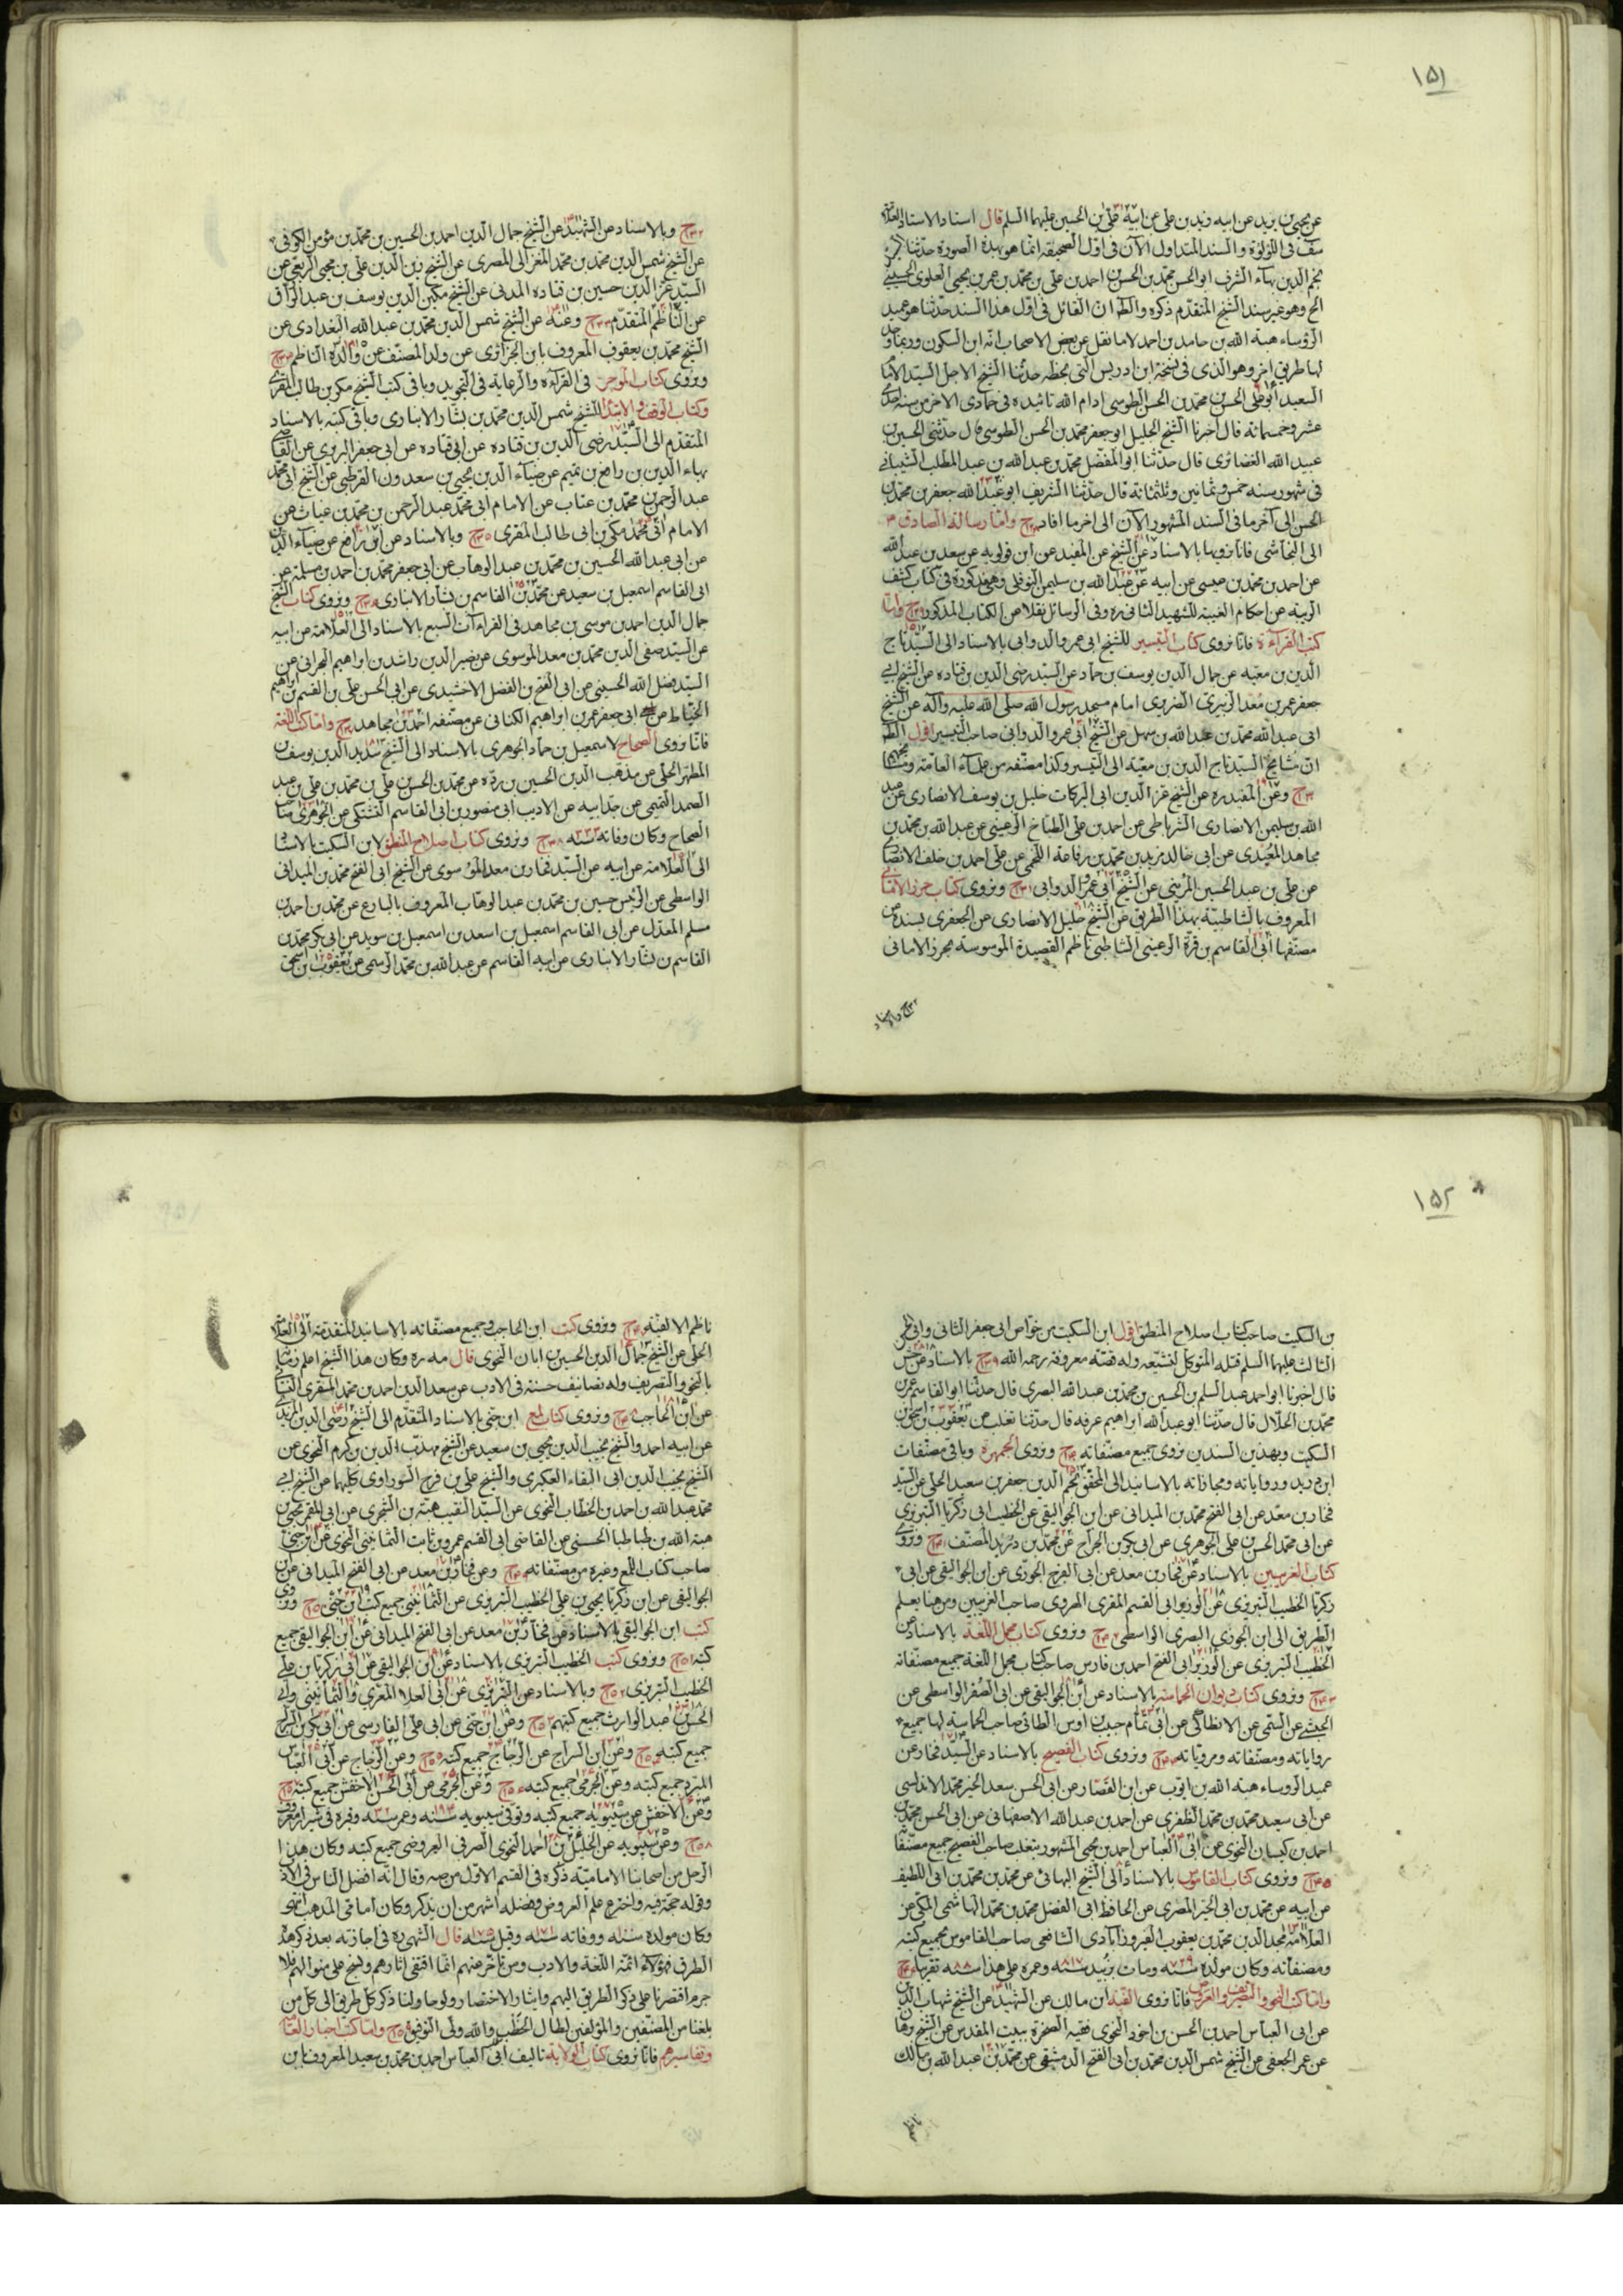 ١٥١
عن يحيى بن زيد عن ابيه زيد بن على عن ابيه على بن الحسين عليهما السلم قال اسناد الاستاد العلامة
فى اللؤلؤة والسند المتداول الآن فى اول الصحيفة انما هو بهذه الصورة حدثنا
نجم الدين بهاء الشرف ابو الحسن محمد بن الحسن بن احمد بن على بن محمد بن عمر بن يحيى العلوى الحسينى
الخ وهو غير سند الشيخ المتقدم ذكره والظ ان القائل فى اول هذا السند حدثنا هو عميد
الرؤساء هبة الله بن حامد بن احمد لا ما نقل عن بعض الاصحاب انه ابن السكون وربما وجد
لها طريق اخر وهو الذى فى نسخة ابن ادريس التى بخطه حدثنا الشيخ الاجل السيد الامام
السعيد ابو على الحسن بن محمد بن الحسن الطوسى ادام الله تاييده فى جمادى الاخر من سنه احدى
عشر وخمسمائة قال اخبرنا الشيخ الجليل ابو جعفر محمد بن الحسن الطوسى قال حدثنى الحسين بن
عبيد الله الغضائرى قال حدثنا ابو المفضل محمد بن عبد الله بن عبد المطلب الشيبانى
فى شهور سنه خمس وثمانين وثلثمائة قال حدثنا الشريف ابو عبد الله جعفر بن محمد بن
الحسن الى آخر ما فى السند المشهور الآن الى اخر ما افاد وامّا رسالة الصادق ع
الى النجاشى فانا نرويها بالاسناد عن الشيخ عن المفيد عن ابن قولويه عن سعد بن عبد الله
عن احمد بن محمد بن عيسى عن ابيه عن عبد الله بن سليمن النوفلى وهى مذكورة فى كتاب كشف
الريبة عن احكام الغيبة للشهيد الثانى ره وفى الوسائل نقلا من الكتاب المذكور وامّا
كتب القراءة فانا نروى كتاب التيسير للشيخ ابى عمرو الدوانى بالاسناد الى السيد تاج
الدين بن معيه عن جمال الدين يوسف بن حماد عن السيد رضى الدين بن قتاده عن الشيخ ابى
جعفر عمر بن معد الزبيرى الضرير امام مسجد رسول الله صلى الله عليه وآله عن الشيخ
ابى عبد الله محمد بن عبد الله بن سهل عن الشيخ ابى عمرو الدوانى صاحب التيسير اقول الظ
ان مشايخ السيد تاج الدين بن معيه الى التيسير وكذا مصنفه من علماء العامة
وعن المقيد ره عن الشيخ عز الدين ابى البركات خليل بن يوسف الانصارى عن عبد
الله بن سليمن الانصارى الشرباطى عن احمد بن على الطباخ الرعينى عن عبد الله بن محمد بن
مجاهد العبدى عن ابى خالد مزيد بن محمد بن رفاعة اللخمى عن على احمد بن خلف الانصارى
عن على بن عبد الحسين المرينى عن الشيخ ابى عمرو الدوانى ونروى كتاب حرز الامانى
المعروف بالشاطبية بهذا الطريق عن الشيخ خليل الانصارى عن الجعفرى بسنده عن
مصنفها ابى القاسم بن فرة الرعينى الشاطبى ناظم القصيدة الموسومة بحرز الامانى
وبالاسناد
وبالاسناد عن الشهيد عن الشيخ جمال الدين احمد بن الحسين بن محمد بن مؤمن الكوفى
عن الشيخ شمس الدين محمد بن محمد الغزالى المصرى عن الشيخ زين الدين على بن يحيى الربعى عن
السيد عز الدين حسين بن قتاده المدنى عن الشيخ مكين الدين يوسف بن عبد الرزاق
عن الناظم المتقدم وعنه عن الشيخ شمس الدين محمد بن عبد الله البغدادى عن
الشيخ محمد بن يعقوب المعروف بابن الجزائرى عن ولد المصنف عن والده الناظم
ونروى كتاب الموجز فى القراءة والرعاية فى التجويد وباقى كتب الشيخ مكى بن طالب المقرى
وكتاب الوقف والابتداء للشيخ شمس الدين محمد بن بشار الانبارى وباقى كتبه بالاسناد
المتقدم الى السيد رضى الدين بن قتاده عن ابى قتاده عن ابى جعفر الزبرى عن القاضى
بهاء الدين بن رافع بن تميم عن ضياء الدين يحيى بن سعدون القرطبى عن الشيخ ابى محمد
عبد الرحمن محمد بن عتاب عن الامام ابى محمد عبد الرحمن بن محمد بن غياث عن
الامام ابى محمد مكى بن ابى طالب المقرى وبالاسناد عن ابن رافع عن ضياء الدين
عن ابى عبد الله الحسين بن محمد بن عبد الوهاب عن ابى جعفر محمد بن احمد بن مسلمة عن
ابى القاسم اسمعيل بن سعيد عن محمد بن القاسم بن بشار الانبارى ونروى كتاب الشيخ
جمال الدين احمد بن موسى بن مجاهد فى القراءات السبع بالاسناد الى العلامة عن ابيه
عن السيد صفى الدين محمد بن معد الموسوى عن نصير الدين راشد بن ابراهيم البحرانى عن
السيد فضل الله الحسينى عن ابى الفتح بن الفضل الاخشيدى عن ابى الحسن على بن القسم بن ابراهيم
الخياط عن ابى جعفر عمر بن ابراهيم الكنانى عن مصنفه احمد بن مجاهد وامّا كتب اللغة
فانا نروى الصحاح لاسمعيل بن حماد الجوهرى بالاسناد الى الشيخ سديد الدين يوسف بن
المطهر الحلى عن مذهب الدين الحسين بن رده عن محمد بن الحسن بن على بن محمد بن على بن عبد
الصمد التميمى عن جد ابيه عن الاديب ابى منصور بن ابى القاسم الفتنكى عن الجوهرى
الصحاح وكان وفاته سنه ونروى كتاب اصلاح المنطق لابن السكيت بالاسناد
الى العلامة عن ابيه عن السيد فخار بن معد الموسوى عن الشيخ ابى الفتح محمد بن الميدانى
الواسطى عن الرئيس حسين بن محمد بن عبد الوهاب المعروف بالبارع عن محمد بن احمد بن
مسلم المعدل عن ابى القاسم اسمعيل بن اسعد بن اسمعيل بن سويد عن ابى بكر محمد بن
القاسم بن بشار الانبارى عن ابيه القاسم عن عبد الله بن محمد الرسمى عن يعقوب بن اسحق
١٥٢
بن السكيت صاحب كتاب اصلاح المنطق اقول ابن السكيت من خواص ابى جعفر الثانى وابى الحسن
الثالث عليهما السلم قتله المتوكل لتشيعه وله قصة معروفة رحمه الله بالاسناد عن
قال اخبرنا ابو احمد عبد السلم بن الحسين بن محمد بن عبد الله البصرى قال حدثنا ابو القاسم عمر بن
محمد بن الخلال قال حدثنا ابو عبد الله ابراهيم عرفه قال حدثنا ثعلب عن يعقوب بن اسحق بن
السكيت وبهذين السندين نروى جميع مصنفاته ونروى الجمهرة وباقى مصنفات
ابن دريد ورواياته ومجازاته بالاسانيد الى المحقق نجم الدين جعفر بن سعيد الحلى عن السيد
فخار بن معد عن ابى الفتح محمد بن الميدانى عن ابن الجواليقى عن الخطيب ابى زكريا التبريزى
عن ابى محمد الحسن بن على الجوهرى عن ابى بكر بن الجراح عن محمد بن دريد المصنف ونروى
كتاب الغريبين بالاسناد عن فخار بن معد عن ابى الفرج الجوزى عن ابن الجواليقى عن ابى
زكريا الخطيب التبريزى عن الوزير ابى القسم المقرى الهروى صاحب الغريبين ومن هنا يعلم
الطريق الى ابن الجوزى البصرى الواسطى ونروى كتاب مجمل اللغة بالاسناد عن
الخطيب التبريزى عن الوزير ابى الفتح احمد بن فارس صاحب كتاب مجمل اللغة جميع مصنفاته
ونروى كتاب ديوان الحماسه بالاسناد عن ابن الجواليقى عن ابى الصقر الواسطى عن
الحبشى عن التنمى عن الانطاكى عن ابى تمام حبيب بن اوس الطائى صاحب الحماسة لها جميع
رواياته ومصنفاته ومروياته ونروى كتاب الفصيح بالاسناد عن السيد فخار عن
عميد الرؤساء هبة الله بن ايوب عن ابن القصار عن ابى الحسن سعد الخير محمد الاندلسى
عن ابى سعيد محمد بن محمد المظفرى عن احمد بن عبد الله الاصفهانى عن ابى الحسن محمد بن
احمد بن كيسان النحوى عن ابى العباس احمد بن يحيى المشهور بثعلب صاحب الفصيح جميع مصنفاته
ونروى كتاب القاموس بالاسناد الى الشيخ البهائى عن محمد بن محمد بن ابى اللطيف
عن ابيه عن محمد بن ابى الخير المصرى عن الحافظ ابى الفضل محمد بن محمد الهاشمى المكى عن
العلامة مجد الدين محمد بن يعقوب الفيروزابادى الشافعى صاحب القاموس بجميع كتبه
ومصنفاته وكان مولده سنه ٧٢٩ ومات بزبيد سنه ٨١٧ وعمره على هذا سنه ٨٨ تقريبا
وامّا كتب النحو والتصريف والعروض فانا نروى الفية ابن مالك عن الشهيد عن الشيخ شهاب الدين
عن ابى العباس احمد بن الحسن بن اخود النحوى فقيه الصخرة ببيت المقدس عن الشيخ برهان
عن عمر الجعفى عن الشيخ شمس الدين محمد بن ابى الفتح الدمشقى عن محمد بن عبد الله بن مالك
ناظم
ناظم الالفية ونروى كتب ابن الحاجب وجميع مصنفاته بالاسانيد المتقدمة الى العلامة
الحلى عن الشيخ جمال الدين الحسين بن ابان النحوى قال مه ره وكان هذا الشيخ اعلم زمانه
بالنحو والتصريف وله تصانيف حسنة فى الادب عن سعد الدين احمد بن محمد المقرى النسائى
عن ابن الحاجب ونروى كتاب لمع ابن جنى بالاسناد المتقدم الى الشيخ رضى الدين المزيدى
عن ابيه احمد والشيخ نجيب الدين يحيى بن سعيد عن الشيخ مهذب الدين بن كرم النحوى عن
الشيخ نجيب الدين ابى البقاء العكبرى والشيخ على بن فرج السوراوى كليهما عن الشيخ ابى
محمد عبد الله بن احمد بن الخطاب النحوى عن السيد النقيب هبة بن الشجرى عن ابى المعمر يحيى بن
هبة الله بن طباطبا الحسنى عن القاضى ابى القسم عمرو بن ثابت الثمانينى النحوى عن ابن جنى
صاحب كتاب اللمع وغيره من مصنفاته وعن فخار بن معد عن ابى الفتح الميدانى عن ابن
الجواليقى عن ابن زكريا يحيى بن على الخطيب التبريزى عن الثمانينى جميع كتب ابن جنى ونروى
كتب ابن الجواليقى بالاسناد عن فخار بن معد عن ابى الفتح الميدانى عن ابن الجواليقى جميع
كتبه ونروى كتب الخطيب التبريزى بالاسناد عن ابن الجواليقى عن ابى زكريا بن على
الخطيب التبريزى وبالاسناد عن التبريزى عن ابى العلا المعرى والثمانينى وابى
الحسن عبد الوارث جميع كتبهم وعن ابن جنى عن ابى على الفارسى عن ابى بكر بن السراج
جميع كتبه وعن ابن السراج عن الزجاج جميع كتبه وعن الزجاج عن ابى العباس
المبرد جميع كتبه وعن الجرمى جميع كتبه وعن الجرمى عن ابى الحسن الاخفش جميع كتبه
وعن الاخفش عن سيبويه جميع كتبه وتوفى سيبويه سنه وعمره سنه وقبره فى شيراز معروف
وعن سيبويه عن الخليل بن احمد النحوى الصرفى العروضى جميع كتبه وكان هذا
الرجل من اصحابنا الامامية ذكره فى القسم الاول من صه وقال انه افضل الناس فى الادب
وقوله حجة فيه واخترع علم العروض وفضله اشهر من ان يذكر وكان امامى المذهب انتهى
وكان مولده سنه ووفاته سنه وقيل سنه قال الشهيد ره فى اجازته بعد ذكر هذه
الطرق فهؤلاء ائمة اللغة والادب ومن تاخر عنهم انما اقتفى اثارهم ونسج على منوالهم فلا
جرم اقتصرنا على ذكر الطريق اليهم وايثار الاختصار ولو حاولنا ذكر كل طريق الى كل من
بلغنا من المصنفين والمؤلفين لطال الخطب والله ولى التوفيق وامّا كتب اخبار العامة
وتفاسيرهم فانا نروى كتاب الولاية تاليف ابى العباس احمد بن محمد بن سعيد المعروف بابن